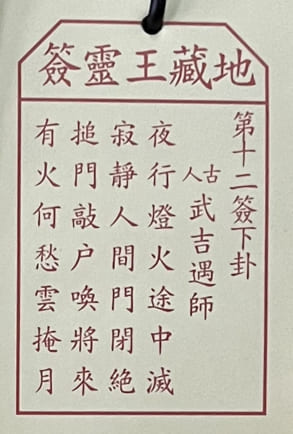 地藏王靈簽
第十二簽下卦
古人武吉遇師
夜行燈火途中滅
寂靜人間門閉絕
搥門敲户喚將來
有火何愁雲掩月